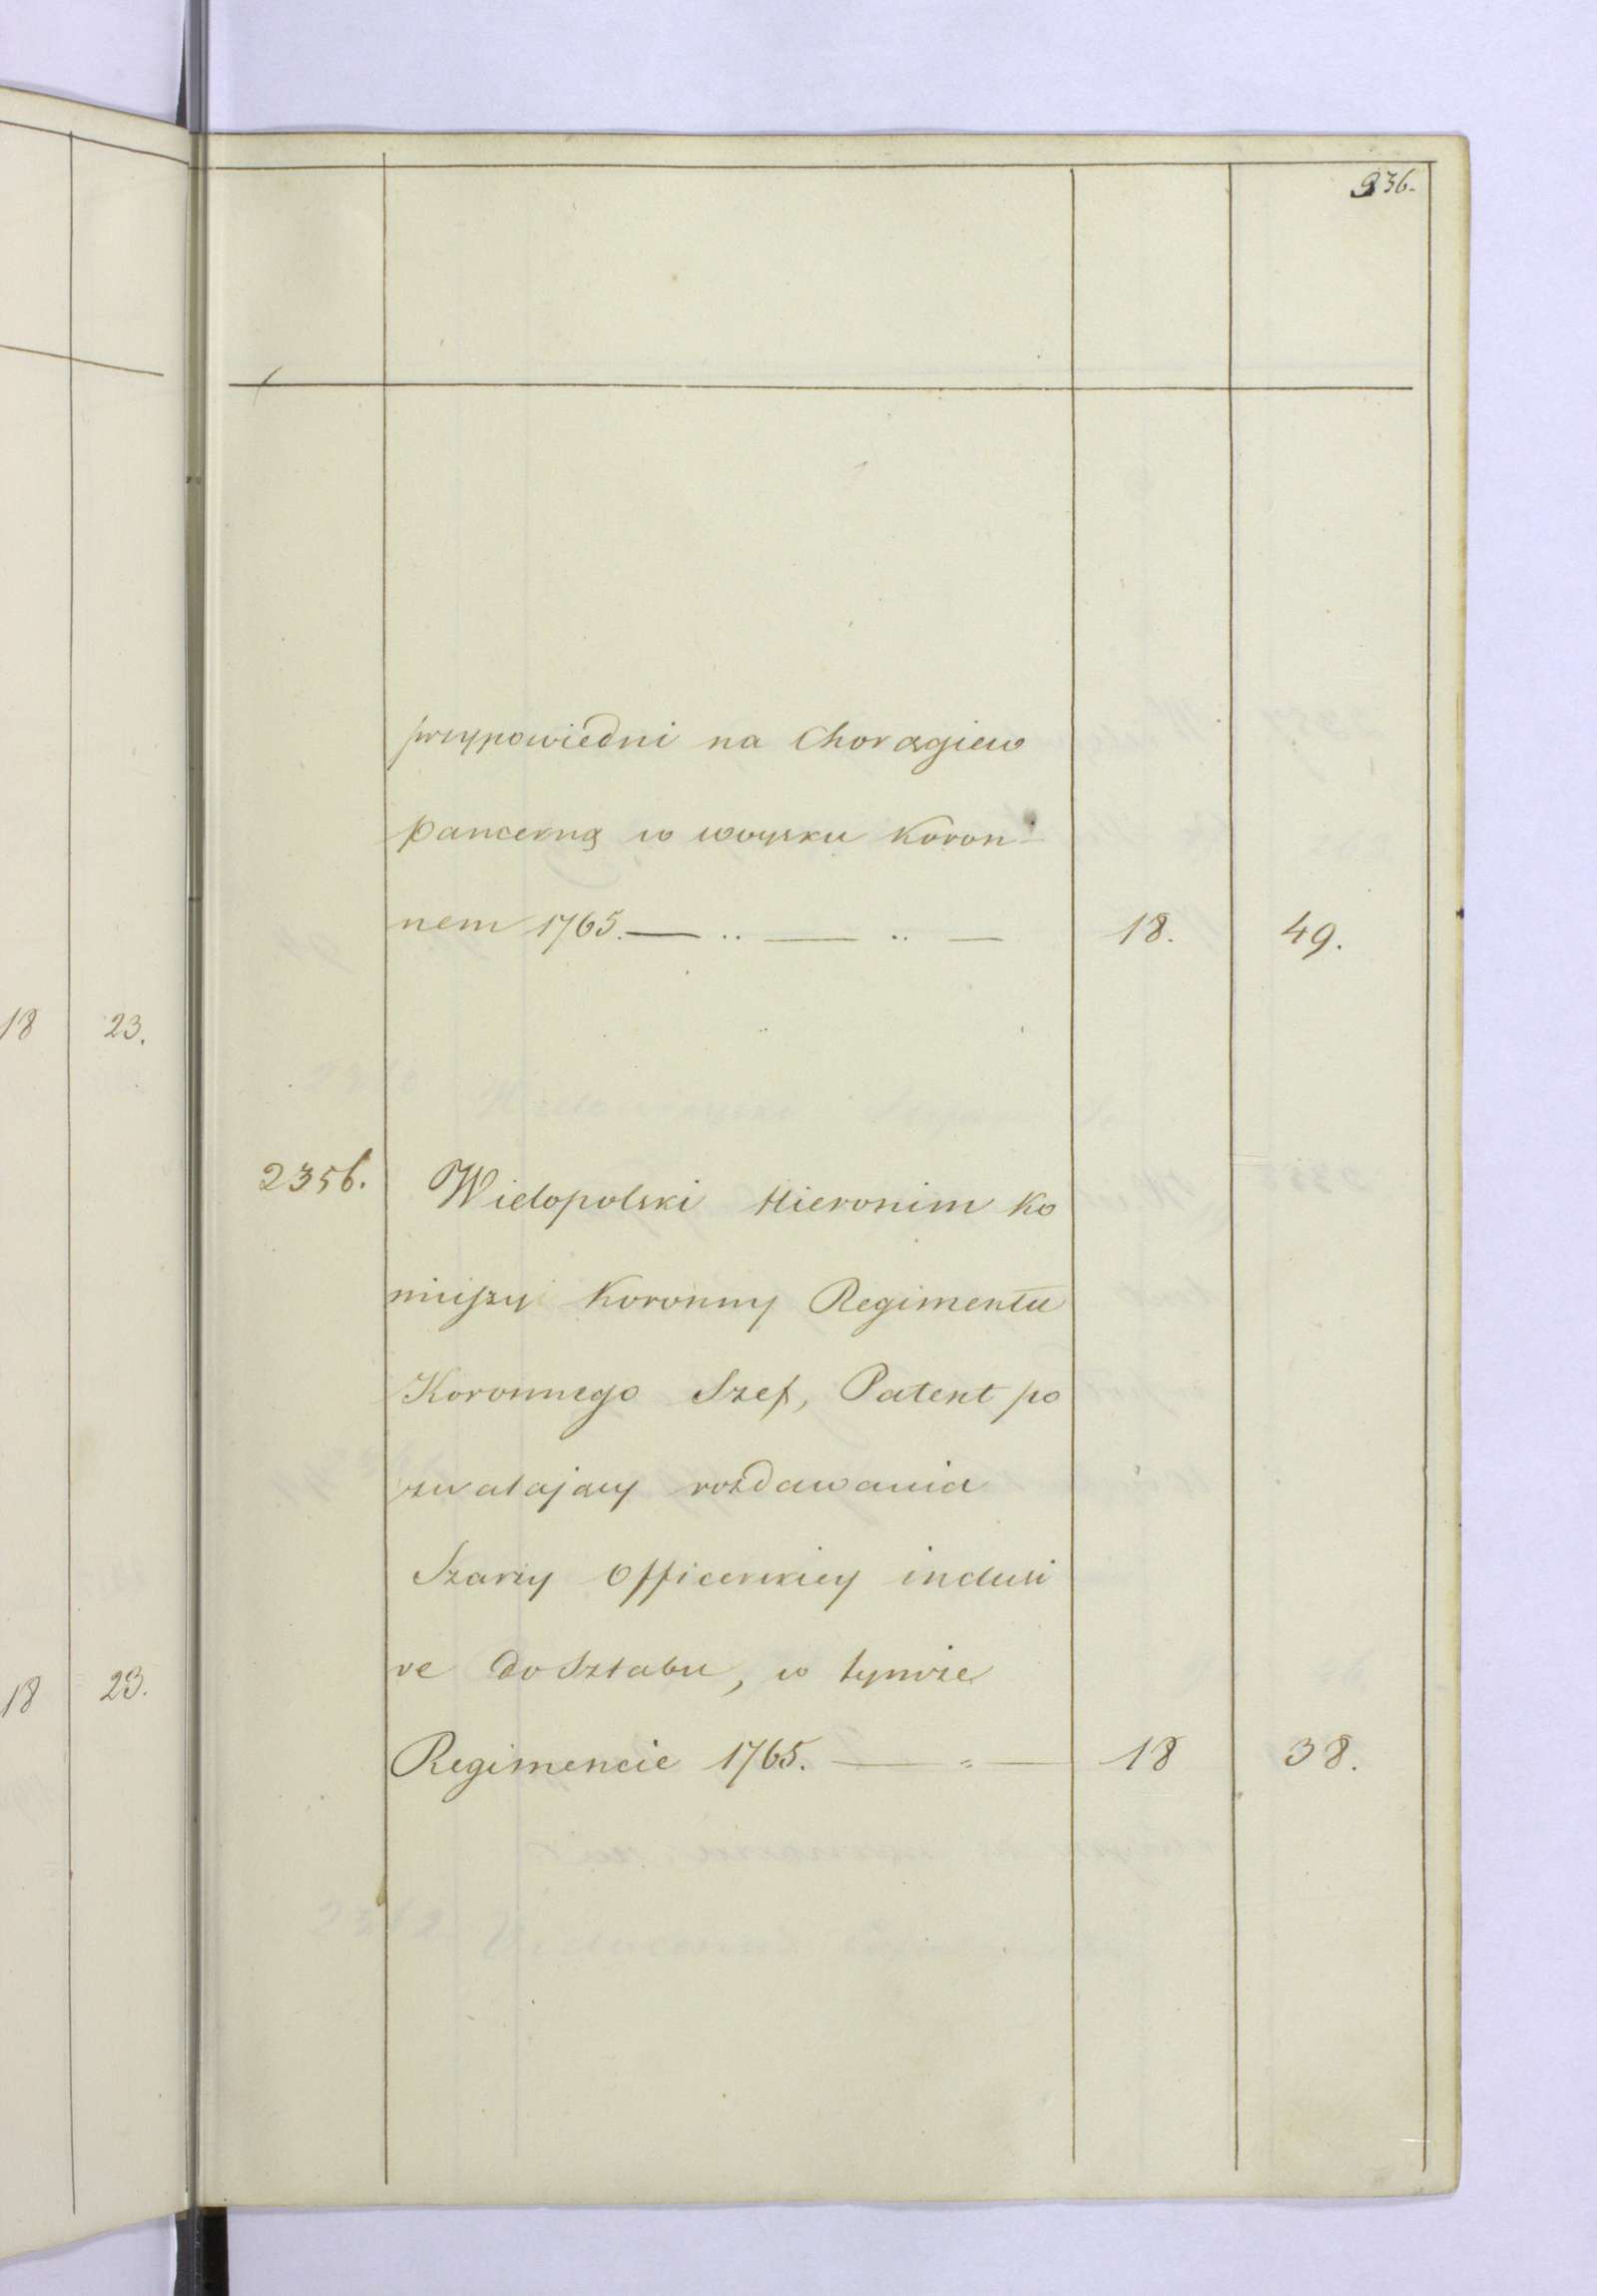 936.
przypowiedni na Chorągiew
pancerną w woysku Koron-
nem 1765. — .. — .. — 18. 49.
18 23.
2356. Wielopolski Hieronim Ko
niuszy Koronny Regimentu
Koronnego Szef, Patent po
zwalający rozdawania
Szarży Officerskiey inclusi
ve do Sztabu, w tymże
18 23.
Regimencie 1765. — = — 18 38.